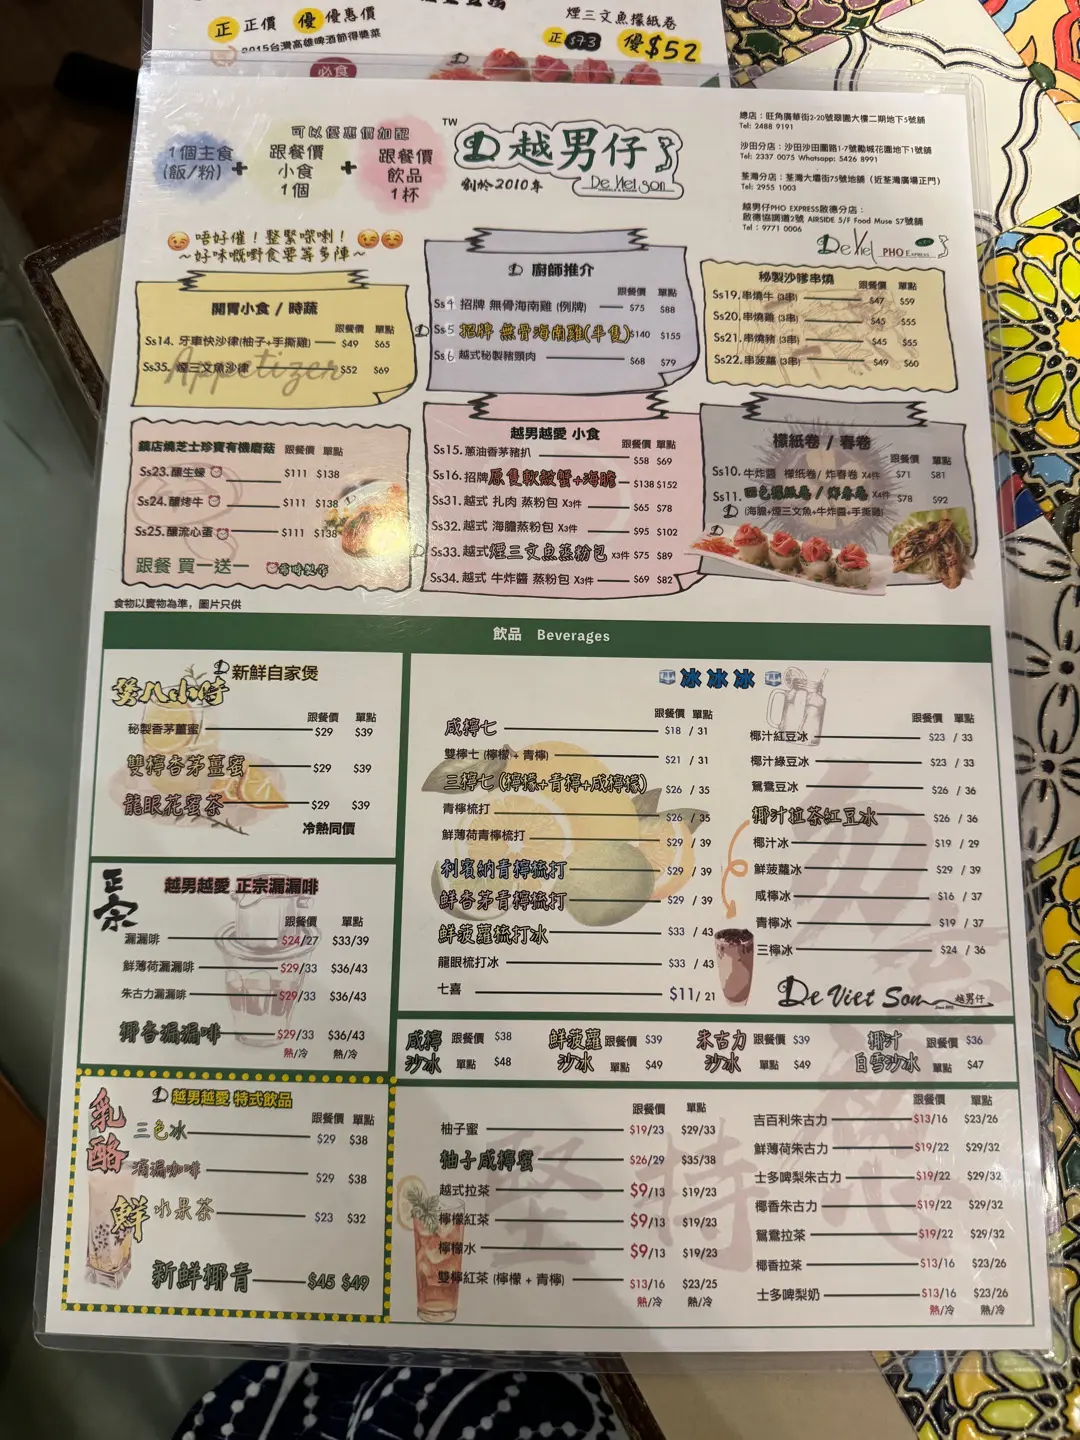 正 正價 優 優惠價
2015台灣高雄啤酒節得獎菜
必食
煙三文魚檬紙卷
正 $73 優$52
1個主食
(飯/粉)
+
可以優惠價加配
跟餐價
小食
1個
+
跟餐價
飲品
1杯
TW
越男仔
創於2010年
De Viet Son
總店：旺角廣華街2-20號翠園大樓二期地下5號舖
Tel: 2488 9191
沙田分店：沙田沙田圍路1-7號勵城花園地下1號舖
Tel: 2337 0075 Whatsapp: 5426 8991
荃灣分店：荃灣大壩街75號地舖（近荃灣廣場正門）
Tel: 2955 1003
越男仔PHO EXPRESS啟德分店：
啟德協調道2號 AIRSIDE 5/F Food Muse S7號舖
Tel：9771 0006
De Viet PHO EXPRESS
唔好催！整緊㗎喇！
~好味嘅嘢食要等多陣~
開胃小食 / 時蔬
跟餐價 單點
Ss14. 牙車快沙律(柚子+手撕雞) $49 $65
Ss35. 煙三文魚沙律 $52 $69
Appetizer
廚師推介
跟餐價 單點
Ss4 招牌 無骨海南雞 (例牌) $75 $88
Ss5 招牌 無骨海南雞(半隻) $140 $155
Ss6 越式秘製豬頸肉 $68 $79
秘製沙嗲串燒
跟餐價 單點
Ss19. 串燒牛 (3串) $47 $59
Ss20. 串燒雞 (3串) $45 $55
Ss21. 串燒豬 (3串) $45 $55
Ss22. 串菠蘿 (3串) $49 $60
鎮店燒芝士珍寶有機磨菇 跟餐價 單點
Ss23. 釀生蠔 $111 $138
Ss24. 釀烤牛 $111 $138
Ss25. 釀流心蛋 $111 $138
跟餐 買一送一 需時製作
越男越愛 小食
跟餐價 單點
Ss15. 蔥油香茅豬扒 $58 $69
Ss16. 招牌原隻軟殼蟹+海膽 $138 $152
Ss31. 越式 扎肉 蒸粉包 X3件 $65 $78
Ss32. 越式 海膽蒸粉包 X3件 $95 $102
Ss33. 越式煙三文魚蒸粉包 X3件 $75 $89
Ss34. 越式 牛炸醬 蒸粉包 X3件 $69 $82
檬紙卷 / 春卷
跟餐價 單點
Ss10. 牛炸醬 檬紙卷/ 炸春卷 X4件 $71 $81
Ss11. 四色檬紙卷 / 炸春卷 X4件 $78 $92
(海膽+煙三文魚+牛炸醬+手撕雞)
食物以實物為準，圖片只供
飲品 Beverages
新鮮自家煲
煲八小時
跟餐價 單點
秘製香茅薑蜜 $29 $39
雙檸香茅薑蜜 $29 $39
龍眼花蜜茶 $29 $39
冷熱同價
正宗
越男越愛 正宗滴漏啡
跟餐價 單點
滴漏啡 $24/27 $33/39
鮮薄荷滴漏啡 $29/33 $36/43
朱古力滴漏啡 $29/33 $36/43
椰香滴漏啡 $29/33 $36/43
熱/冷 熱/冷
越男越愛 特式飲品
乳酪
跟餐價 單點
三色冰 $29 $38
滴漏咖啡 $29 $38
鮮水果茶 $23 $32
新鮮椰青 $45 $49
冰冰冰
跟餐價 單點
咸檸七 $18 / 31
雙檸七 (檸檬 + 青檸) $21 / 31
三檸七 (檸檬+青檸+咸檸檬) $26 / 35
青檸梳打 $26 / 35
鮮薄荷青檸梳打 $29 / 39
利賓納青檸梳打 $29 / 39
鮮香茅青檸梳打 $29 / 39
鮮菠蘿梳打冰 $33 / 43
龍眼梳打冰 $33 / 43
七喜 $11/ 21
跟餐價 單點
椰汁紅豆冰 $23 / 33
椰汁綠豆冰 $23 / 33
鴛鴦豆冰 $26 / 36
椰汁拉茶紅豆冰 $26 / 36
椰汁冰 $19 / 29
鮮菠蘿冰 $29 / 39
咸檸冰 $16 / 37
青檸冰 $19 / 37
三檸冰 $24 / 36
De Viet Son 越男仔
咸檸沙冰 跟餐價 $38 單點 $48
鮮菠蘿沙冰 跟餐價 $39 單點 $49
朱古力沙冰 跟餐價 $39 單點 $49
椰汁白雪沙冰 跟餐價 $36 單點 $47
堅持
跟餐價 單點
柚子蜜 $19/23 $29/33
柚子咸檸蜜 $26/29 $35/38
越式拉茶 $9/13 $19/23
檸檬紅茶 $9/13 $19/23
檸檬水 $9/13 $19/23
雙檸紅茶 (檸檬 + 青檸) $13/16 $23/25
熱/冷 熱/冷
跟餐價 單點
吉百利朱古力 $13/16 $23/26
鮮薄荷朱古力 $19/22 $29/32
士多啤梨朱古力 $19/22 $29/32
椰香朱古力 $19/22 $29/32
鴛鴦拉茶 $19/22 $29/32
椰香拉茶 $13/16 $23/26
士多啤梨奶 $13/16 $23/26
熱/冷 熱/冷